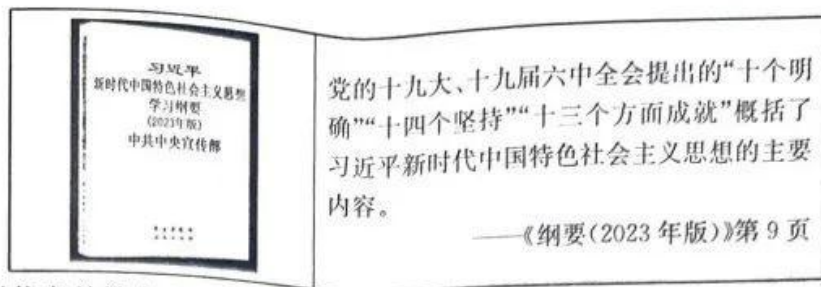 习近平
新时代中国特色社会主义思想
学习纲要
(2023年版)
中共中央宣传部
党的十九大、十九届六中全会提出的“十个明
确”“十四个坚持”“十三个方面成就”概括了
习近平新时代中国特色社会主义思想的主要
内容。
——《纲要(2023年版)》第9页